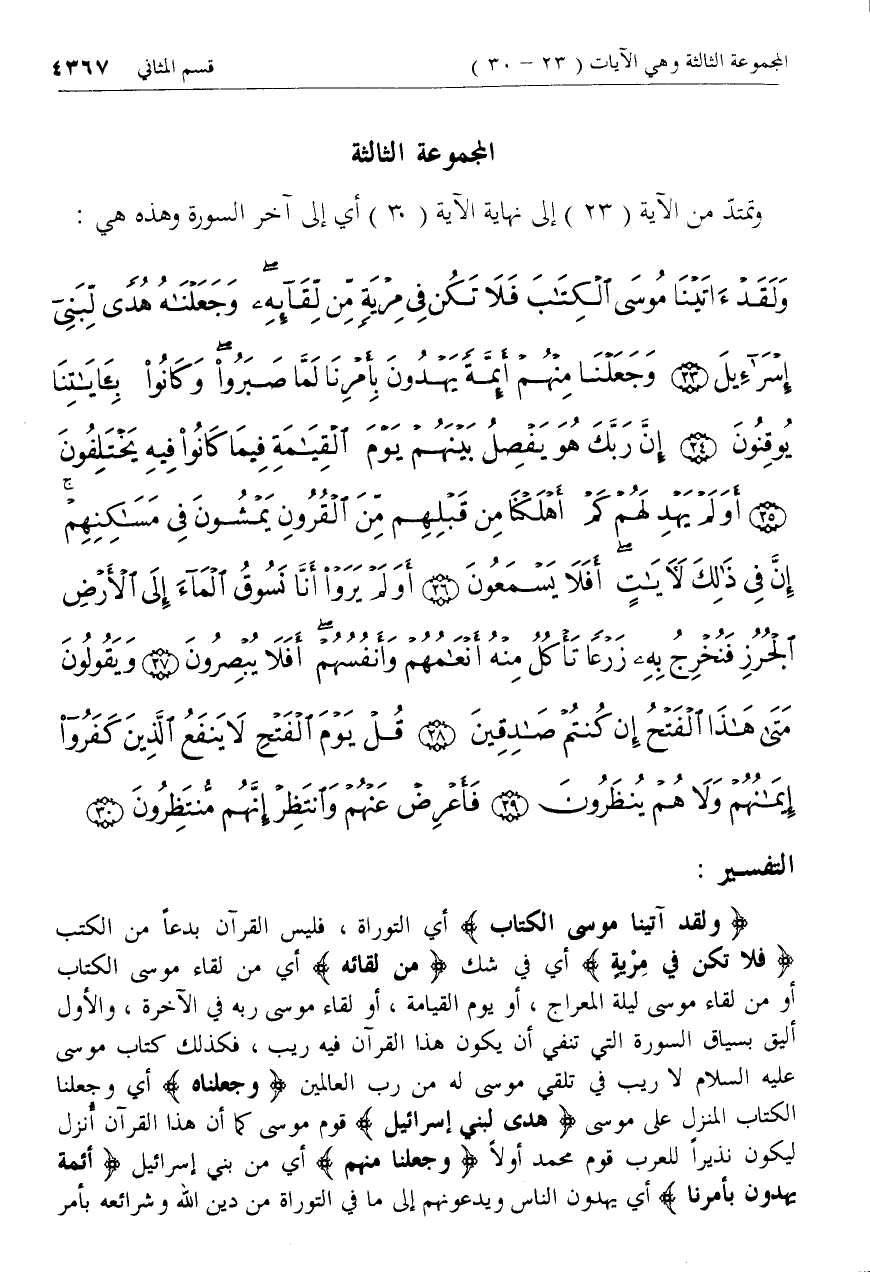 المجموعة الثالثة وهي الآيات ( ٢٣ - ٣٠ ) قسم المثاني ٤٣٦٧
المجموعة الثالثة
وتمتدّ من الآية ( ٢٣ ) إلى نهاية الآية ( ٣٠ ) أي إلى آخر السورة وهذه هي :
وَلَقَدْ ءَاتَيْنَا مُوسَى ٱلْكِتَٰبَ فَلَا تَكُن فِى مِرْيَةٍ مِّن لِّقَآئِهِۦ ۖ وَجَعَلْنَٰهُ هُدًى لِّبَنِىٓ
إِسْرَٰٓءِيلَ ٢٣ وَجَعَلْنَا مِنْهُمْ أَئِمَّةً يَهْدُونَ بِأَمْرِنَا لَمَّا صَبَرُوا۟ ۖ وَكَانُوا۟ بِـَٔايَٰتِنَا
يُوقِنُونَ ٢٤ إِنَّ رَبَّكَ هُوَ يَفْصِلُ بَيْنَهُمْ يَوْمَ ٱلْقِيَٰمَةِ فِيمَا كَانُوا۟ فِيهِ يَخْتَلِفُونَ
٢٥ أَوَلَمْ يَهْدِ لَهُمْ كَمْ أَهْلَكْنَا مِن قَبْلِهِم مِّنَ ٱلْقُرُونِ يَمْشُونَ فِى مَسَٰكِنِهِمْ ۚ
إِنَّ فِى ذَٰلِكَ لَـَٔايَٰتٍ ۖ أَفَلَا يَسْمَعُونَ ٢٦ أَوَلَمْ يَرَوْا۟ أَنَّا نَسُوقُ ٱلْمَآءَ إِلَى ٱلْأَرْضِ
ٱلْجُرُزِ فَنُخْرِجُ بِهِۦ زَرْعًا تَأْكُلُ مِنْهُ أَنْعَٰمُهُمْ وَأَنفُسُهُمْ ۖ أَفَلَا يُبْصِرُونَ ٢٧ وَيَقُولُونَ
مَتَىٰ هَٰذَا ٱلْفَتْحُ إِن كُنتُمْ صَٰدِقِينَ ٢٨ قُلْ يَوْمَ ٱلْفَتْحِ لَا يَنفَعُ ٱلَّذِينَ كَفَرُوٓا۟
إِيمَٰنُهُمْ وَلَا هُمْ يُنظَرُونَ ٢٩ فَأَعْرِضْ عَنْهُمْ وَٱنتَظِرْ إِنَّهُم مُّنتَظِرُونَ ٣٠
التفسير :
﴿ ولقد آتينا موسى الكتاب ﴾ أي التوراة ، فليس القرآن بدعاً من الكتب
﴿ فلا تكن في مِرْيةٍ ﴾ أي في شك ﴿ من لقائه ﴾ أي من لقاء موسى الكتاب
أو من لقاء موسى ليلة المعراج ، أو يوم القيامة ، أو لقاء موسى ربه في الآخرة ، والأول
أليق بسياق السورة التي تنفي أن يكون هذا القرآن فيه ريب ، فكذلك كتاب موسى
عليه السلام لا ريب في تلقي موسى له من رب العالمين ﴿ وجعلناه ﴾ أي وجعلنا
الكتاب المنزل على موسى ﴿ هدى لبني إسرائيل ﴾ قوم موسى كما أن هذا القرآن أُنزل
ليكون نذيراً للعرب قوم محمد أولاً ﴿ وجعلنا منهم ﴾ أي من بني إسرائيل ﴿ أئمة
يهدون بأمرنا ﴾ أي يهدون الناس ويدعونهم إلى ما في التوراة من دين الله وشرائعه بأمر